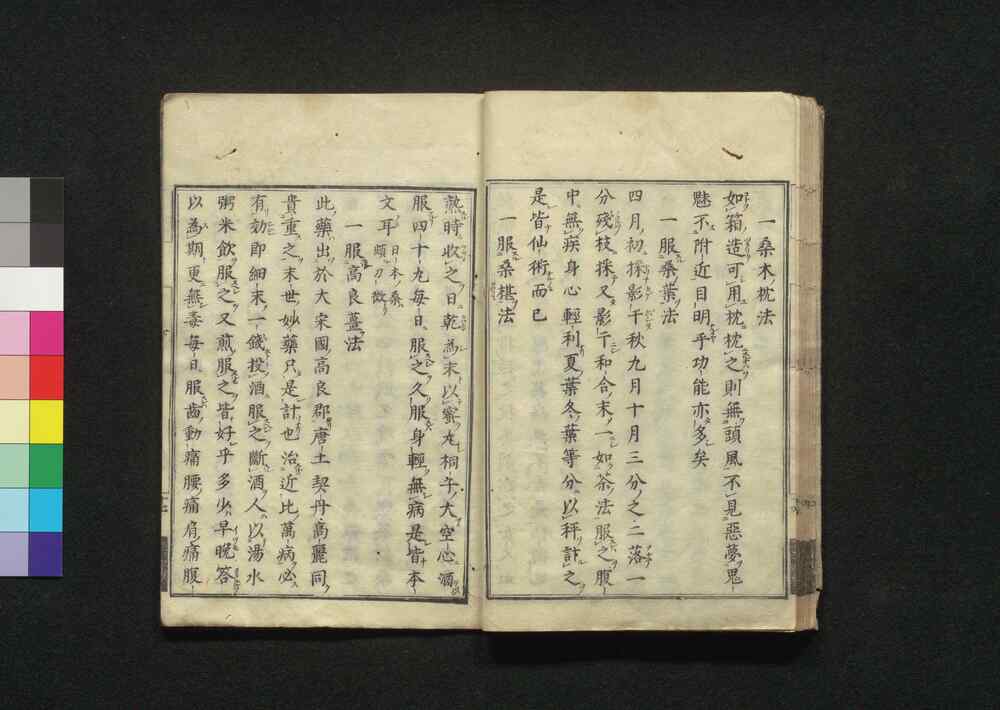 一桑木枕法
如箱造可用枕枕之則無頭風不見惡夢鬼
魅不附近目明乎功能亦多矣
一服桑葉法
四月初採影干秋九月十月三分之二落一
分殘枝採又影干和合末一如茶法服之腹
中無疾身心輕利夏葉冬葉等分以秤計之
是皆仙術而已
一服桑椹法
熟時收之日乾為末以蜜丸桐子大空心酒
服四十九每日服之久服身輕無病是皆本
文耳日本桑頗力微
一服高良薑法
此藥出於大宋國高良郡唐土契丹高麗同
貴重之末世妙藥只是計也治近比萬病必
有効即細末一錢投酒服之斷酒人以湯水
粥米飲服之又煎服之皆好乎多少早晚答
以為期更無毒每日服齒動痛腰痛肩痛腹